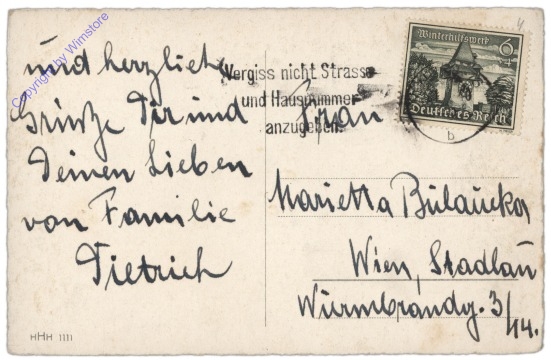 und herzliche
Grüße Dir und
Deinen Lieben
von Familie
Dietrich
HHH 1111
Vergiss nicht Strasse
und Hausnummer
anzugeben
Winterhilfswerk 6
Deutsches Reich
b
Frau
Marietta Bulauka
Wien, Stadlau
Wurmbrandg. 3/14.
Copyright by Wimstore